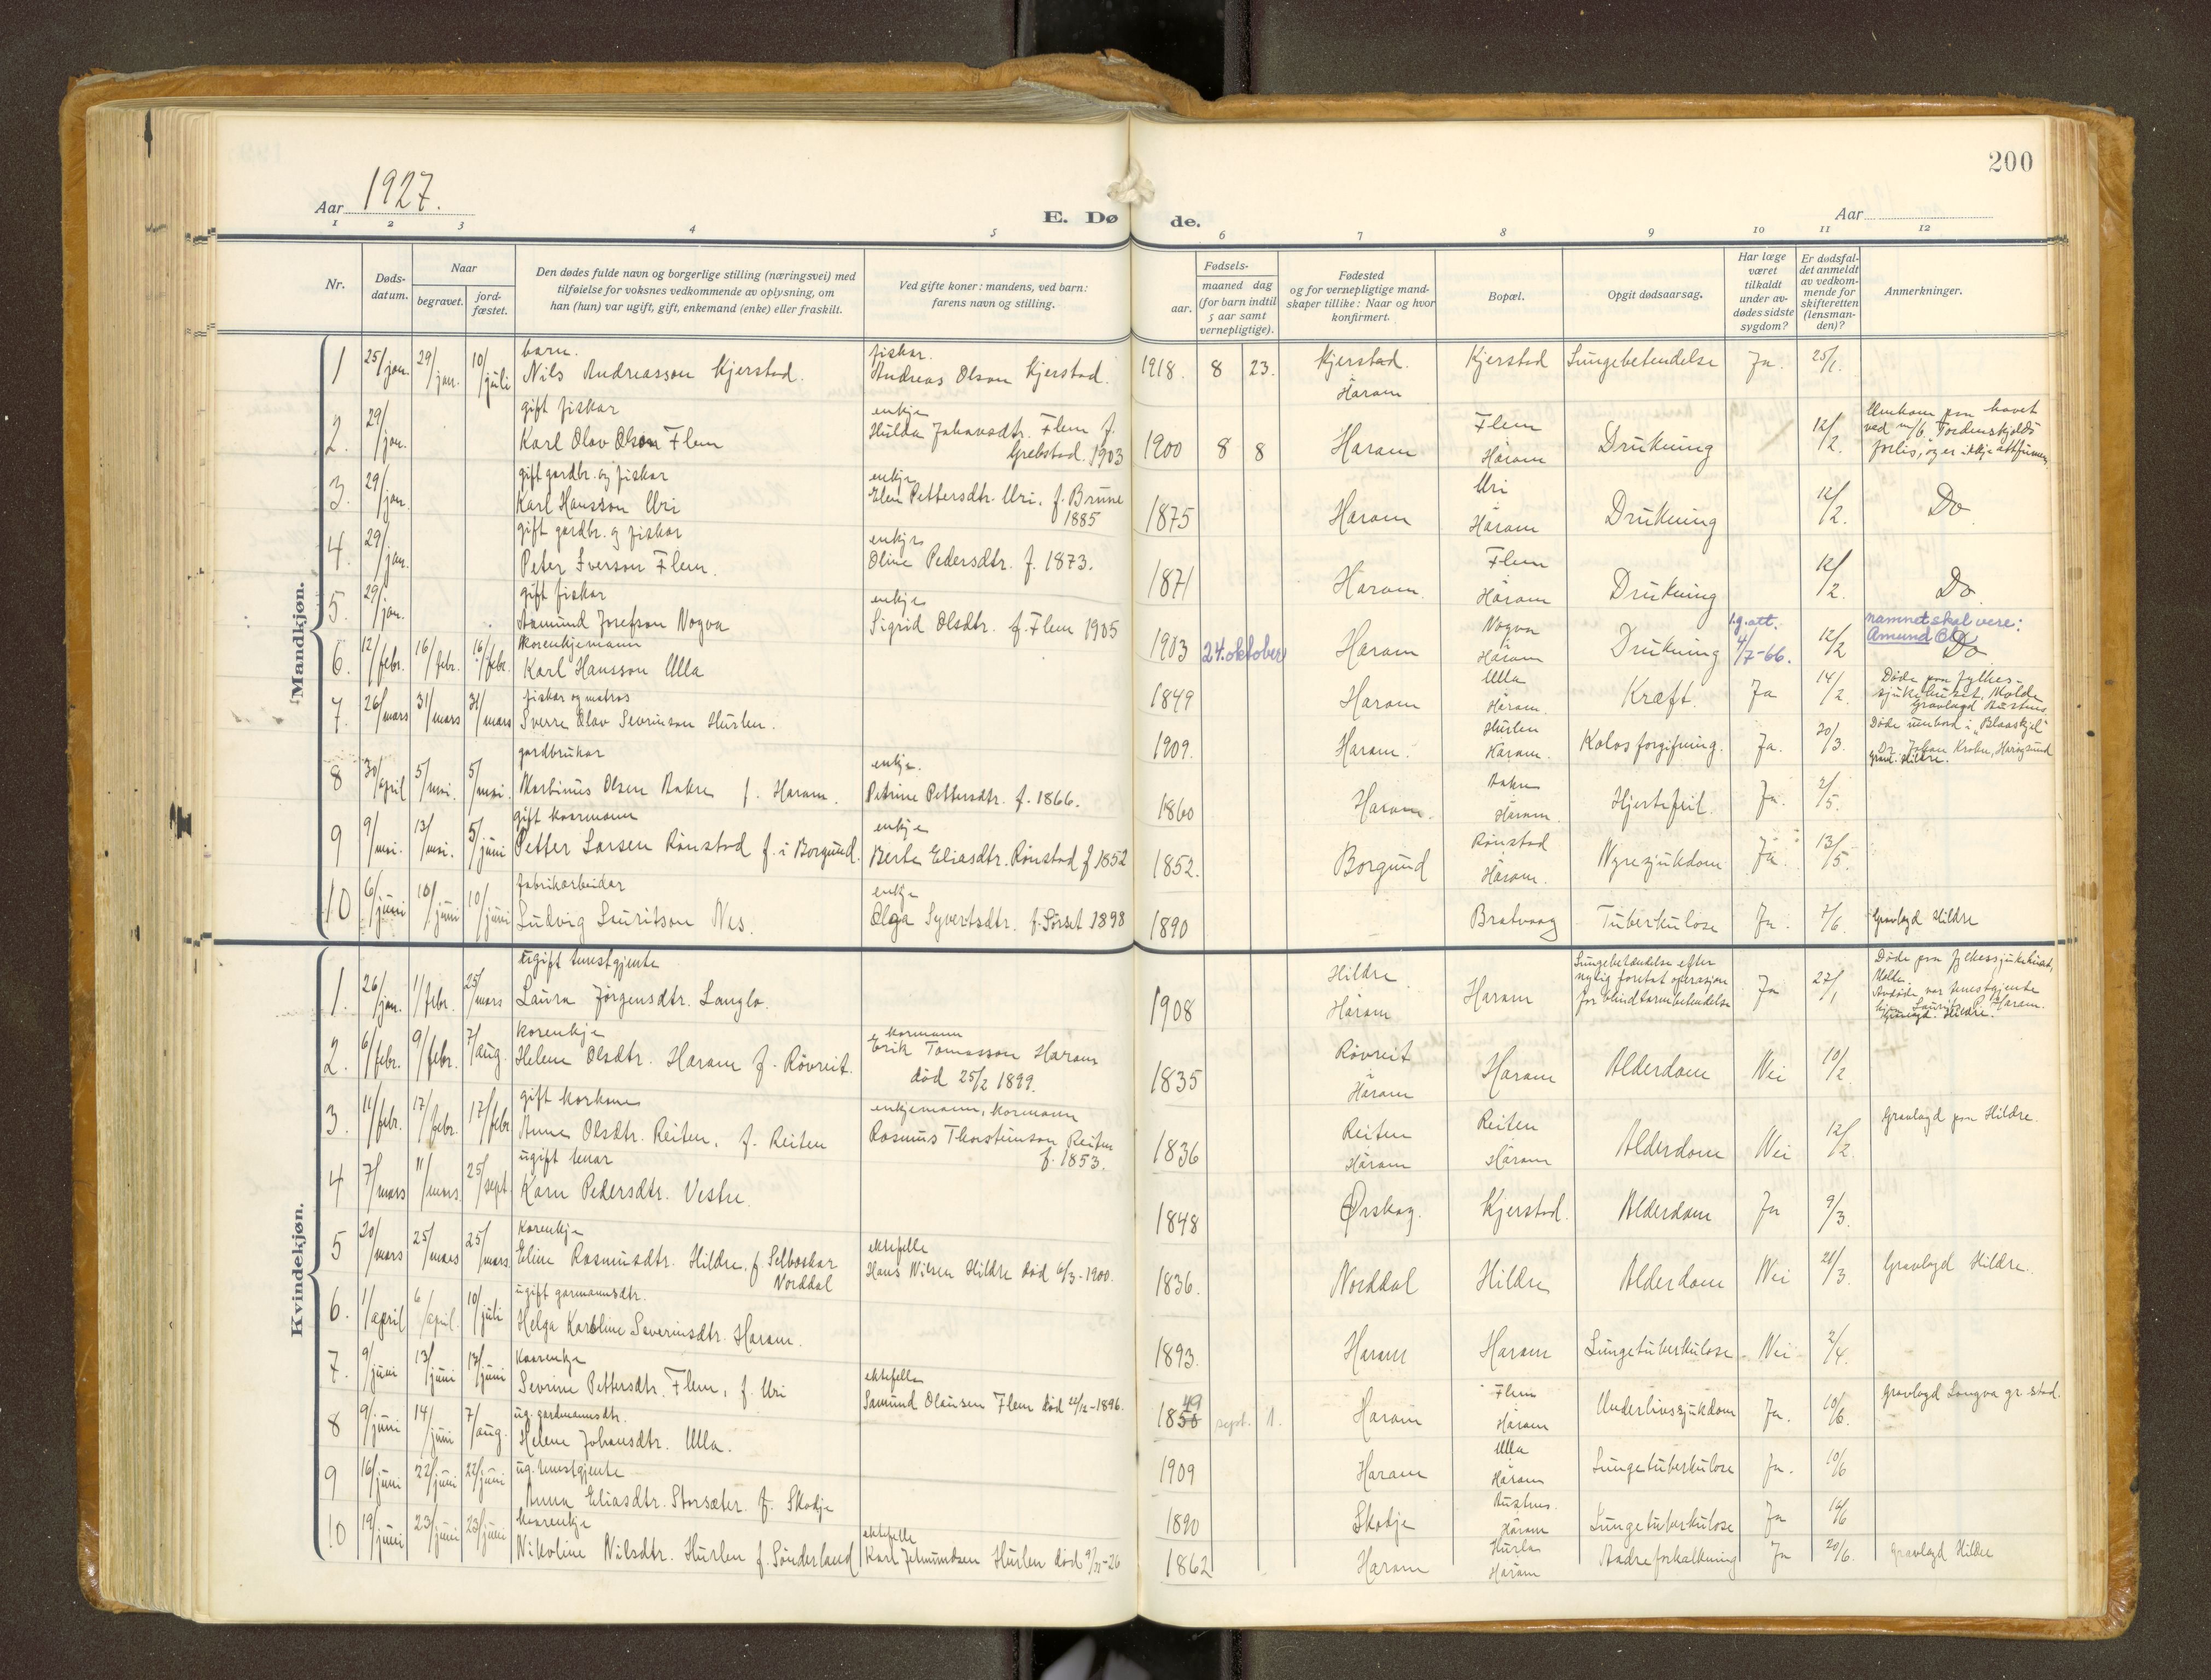 200
Aar 1927.
E. Døde.
Aar
1 2 3 4 5 6 7 8 9 10 11 12
Nr.
Døds-
datum.
Naar
begravet.
jord-
fæstet.
Den dødes fulde navn og borgerlige stilling (næringsvei) med
tilføielse for voksnes vedkommende av oplysning, om
han (hun) var ugift, gift, enkemand (enke) eller fraskilt.
Ved gifte koner: mandens, ved barn:
farens navn og stilling.
Fødsels-
aar.
maaned dag
(for barn indtil
5 aar samt
vernepligtige).
Fødested
og for vernepligtige mand-
skaper tillike: Naar og hvor
konfirmert.
Bopæl.
Opgit dødsaarsag.
Har læge
været
tilkaldt
under av-
dødes sidste
sygdom?
Er dødsfal-
det anmeldt
av vedkom-
mende for
skifteretten
(lensman-
den)?
Anmerkninger.
Mandkjøn.
barn. fiskar.
1 25/jan. 29/jan. 10/juli Nils Andreasson Kjerstad. Andreas Olson Kjerstad. 1918. 8 23. Kjerstad. Haram Kjerstad Lungebetendelse Ja. 25/1.
gift fiskar enkje
2. 29/jan. Karl Olav Olson Flem Hulda Johansdtr. Flem f. Grebstad. 1903 1900 8 8 Haram Flem Haram Drukning 12/2. Umkom paa havet
ved m/b. Tordenskjolds
forlis, og er ikkje attfunnen
gift gardbr. og fiskar enkje
3. 29/jan. Karl Hansson Uri Elen Pettersdtr. Uri. f. Brune 1885 1875 Haram Uri Haram Drukning 12/2. Do
gift gardbr. og fiskar enkje
4. 29/jan. Peter Iverson Flem. Oline Pedersdtr. f. 1873. 1871 Haram. Flem Haram Drukning 12/2. Do
gift fiskar enkje
5. 29/jan. Aamund Josefson Nogva Sigrid Olsdtr. f. Flem 1905 1903 24. oktober Haram Nogva Haram Drukning 4/7-66. 12/2 namnet skal vere:
Amund
Do
korenkjemann
6. 12/febr. 16/febr. 16/febr. Karl Hansson Ulla 1849 Haram Ulla Haram. Kræft. Ja 14/2. Døde paa fylkes-
sjukehuset, Molde
Gravlagd
fiskar og matros
7. 26/mars 31/mars 31/mars Sverre Olav Sevrinson Hurlen. 1909. Haram. Hurlen Haram. Kolosforgifning. Ja. 30/3. Døde umbord i "Blaaskjel"
Gravl. Hildre.
gardbrukar enkje.
8 30/april 5/mai. 5/mai. Martinus Olsen Aakre f. Haram. Petrine Pettersdtr. f. 1866. 1860 Haram. Aakre Haram. Hjertefeil. Ja. 2/5.
gift kaarmann enkje
9 9/mai. 13/mai. 5/juni Petter Larsen Rønstad f. i Borgund. Berte Eliasdtr. Rønstad f 1852 1852. Borgund Rønstad Haram. Nyresjukdom Ja. 13/5.
fabrikarbeidar enkje
10 6/juni 10/juni 10/juni Ludvig Lauritson Nes. Olga Syvertsdtr. f. Sørset 1898 1890 Bratvaag Tuberkulose Ja. 7/6. Gravlagd Hildre
Kvindekjøn.
ugift tenestgjente
1. 26/jan. 1/febr. 25/mars Laura Jørgensdtr. Langlo. 1908 Hildre Haram Haram Lungebetændelse efter
nylig foretat operasjon
for blindtarmbetendelse Ja 27/1 Døde paa fylkessjukehuset,
Molde.
Avdøde var tenestgjente
Haram.
Gravlagd. Hildre.
korenkje kormann
2. 6/febr. 9/febr. 7/aug. Helene Olsdtr. Haram f. Røvreit. Erik Tomasson Haram
død 25/2 1899. 1835 Røvreit Haram Haram Alderdom Nei 10/2.
gift korkone enkjemann, kormann
3. 11/febr. 17/febr. 17/febr Anne Olsdtr. Reiten, f. Reiten Rasmus Thorsteinson Reiten
f. 1853. 1836 Reiten Haram Reiten Haram Alderdom Nei 12/2. Gravlagd paa Hildre.
ugift
4 7/mars 11/mars 25/sept. Karn Pedersdtr. Vestre. 1848 Ørskog. Kjerstad. Alderdom Ja 9/3.
Korenkje ektefelle
5 20/mars 25/mars 25/mars Eline Rasmusdtr. Hildre, f. Selboskar
Norddal Hans Nilsen Hildre død 6/3-1900. 1836. Norddal Hildre Alderdom Nei 21/3. Gravlagd Hildre.
ugift garmannsdtr.
6. 1/april 6/april. 10/juli Helga Karoline Severinsdtr. Haram. 1893. Haram Haram Lungetuberkulose Nei 2/4.
Kaarenkje ektefelle
7. 9/juni 13/juni 13/juni Sevrine Pettersdtr. Flem, f. Uri Samund Olausen Flem død 22/12-1896. 1850 49 sept. 1. Haram Flem Haram Underlivssjukdom Ja. 10/6. Gravlagd Longva gr. stad.
ug. gardmannsdtr.
8 9/juni 14/juni 7/aug. Helene Johansdtr. Ulla. 1909 Haram Ulla Haram Lungetuberkulose Ja. 10/6
ug. tenestgjente
9 16/juni 22/juni 22/juni Anna Eliasdtr. Storsæter. f. Skodje 1890 Skodje Austnes. Haram Lungetuberkulose Ja 16/6
kaarenkje ektefelle
10 19/juni 23/juni 23/juni Nikoline Nilsdtr. Hurlen f. Sønderland Karl Jetmundsen Hurlen død 1862 Haram Hurlen Haram Aadreforkalkning Ja 20/6. Gravlagd Hildre